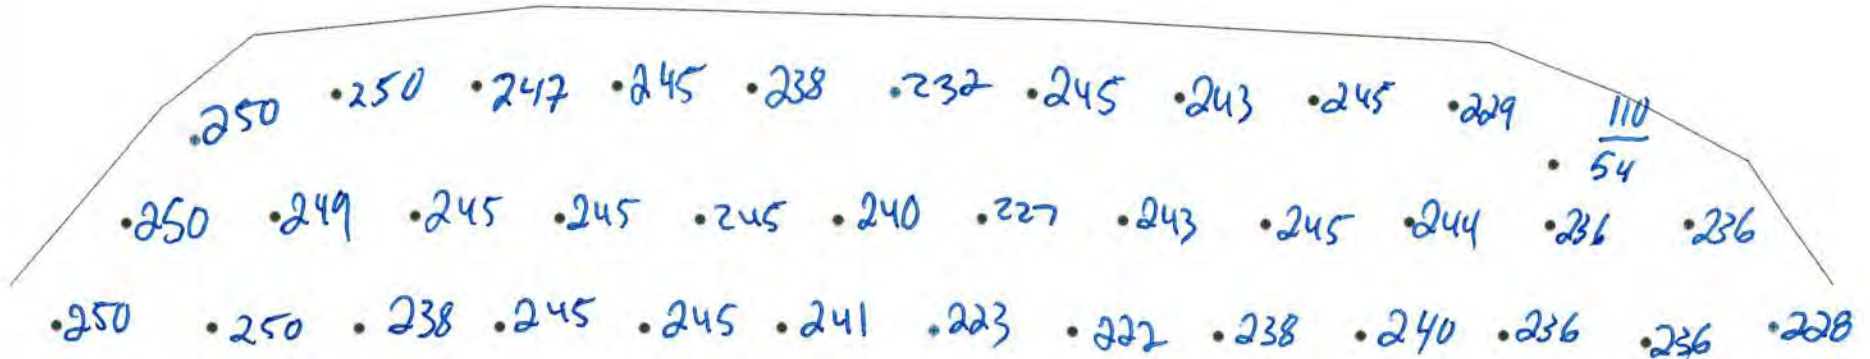 250 250 247 245 238 232 245 243 245 229 110
54
250 249 245 245 245 240 227 243 245 244 236 236
250 250 238 245 245 241 223 222 238 240 236 236 228